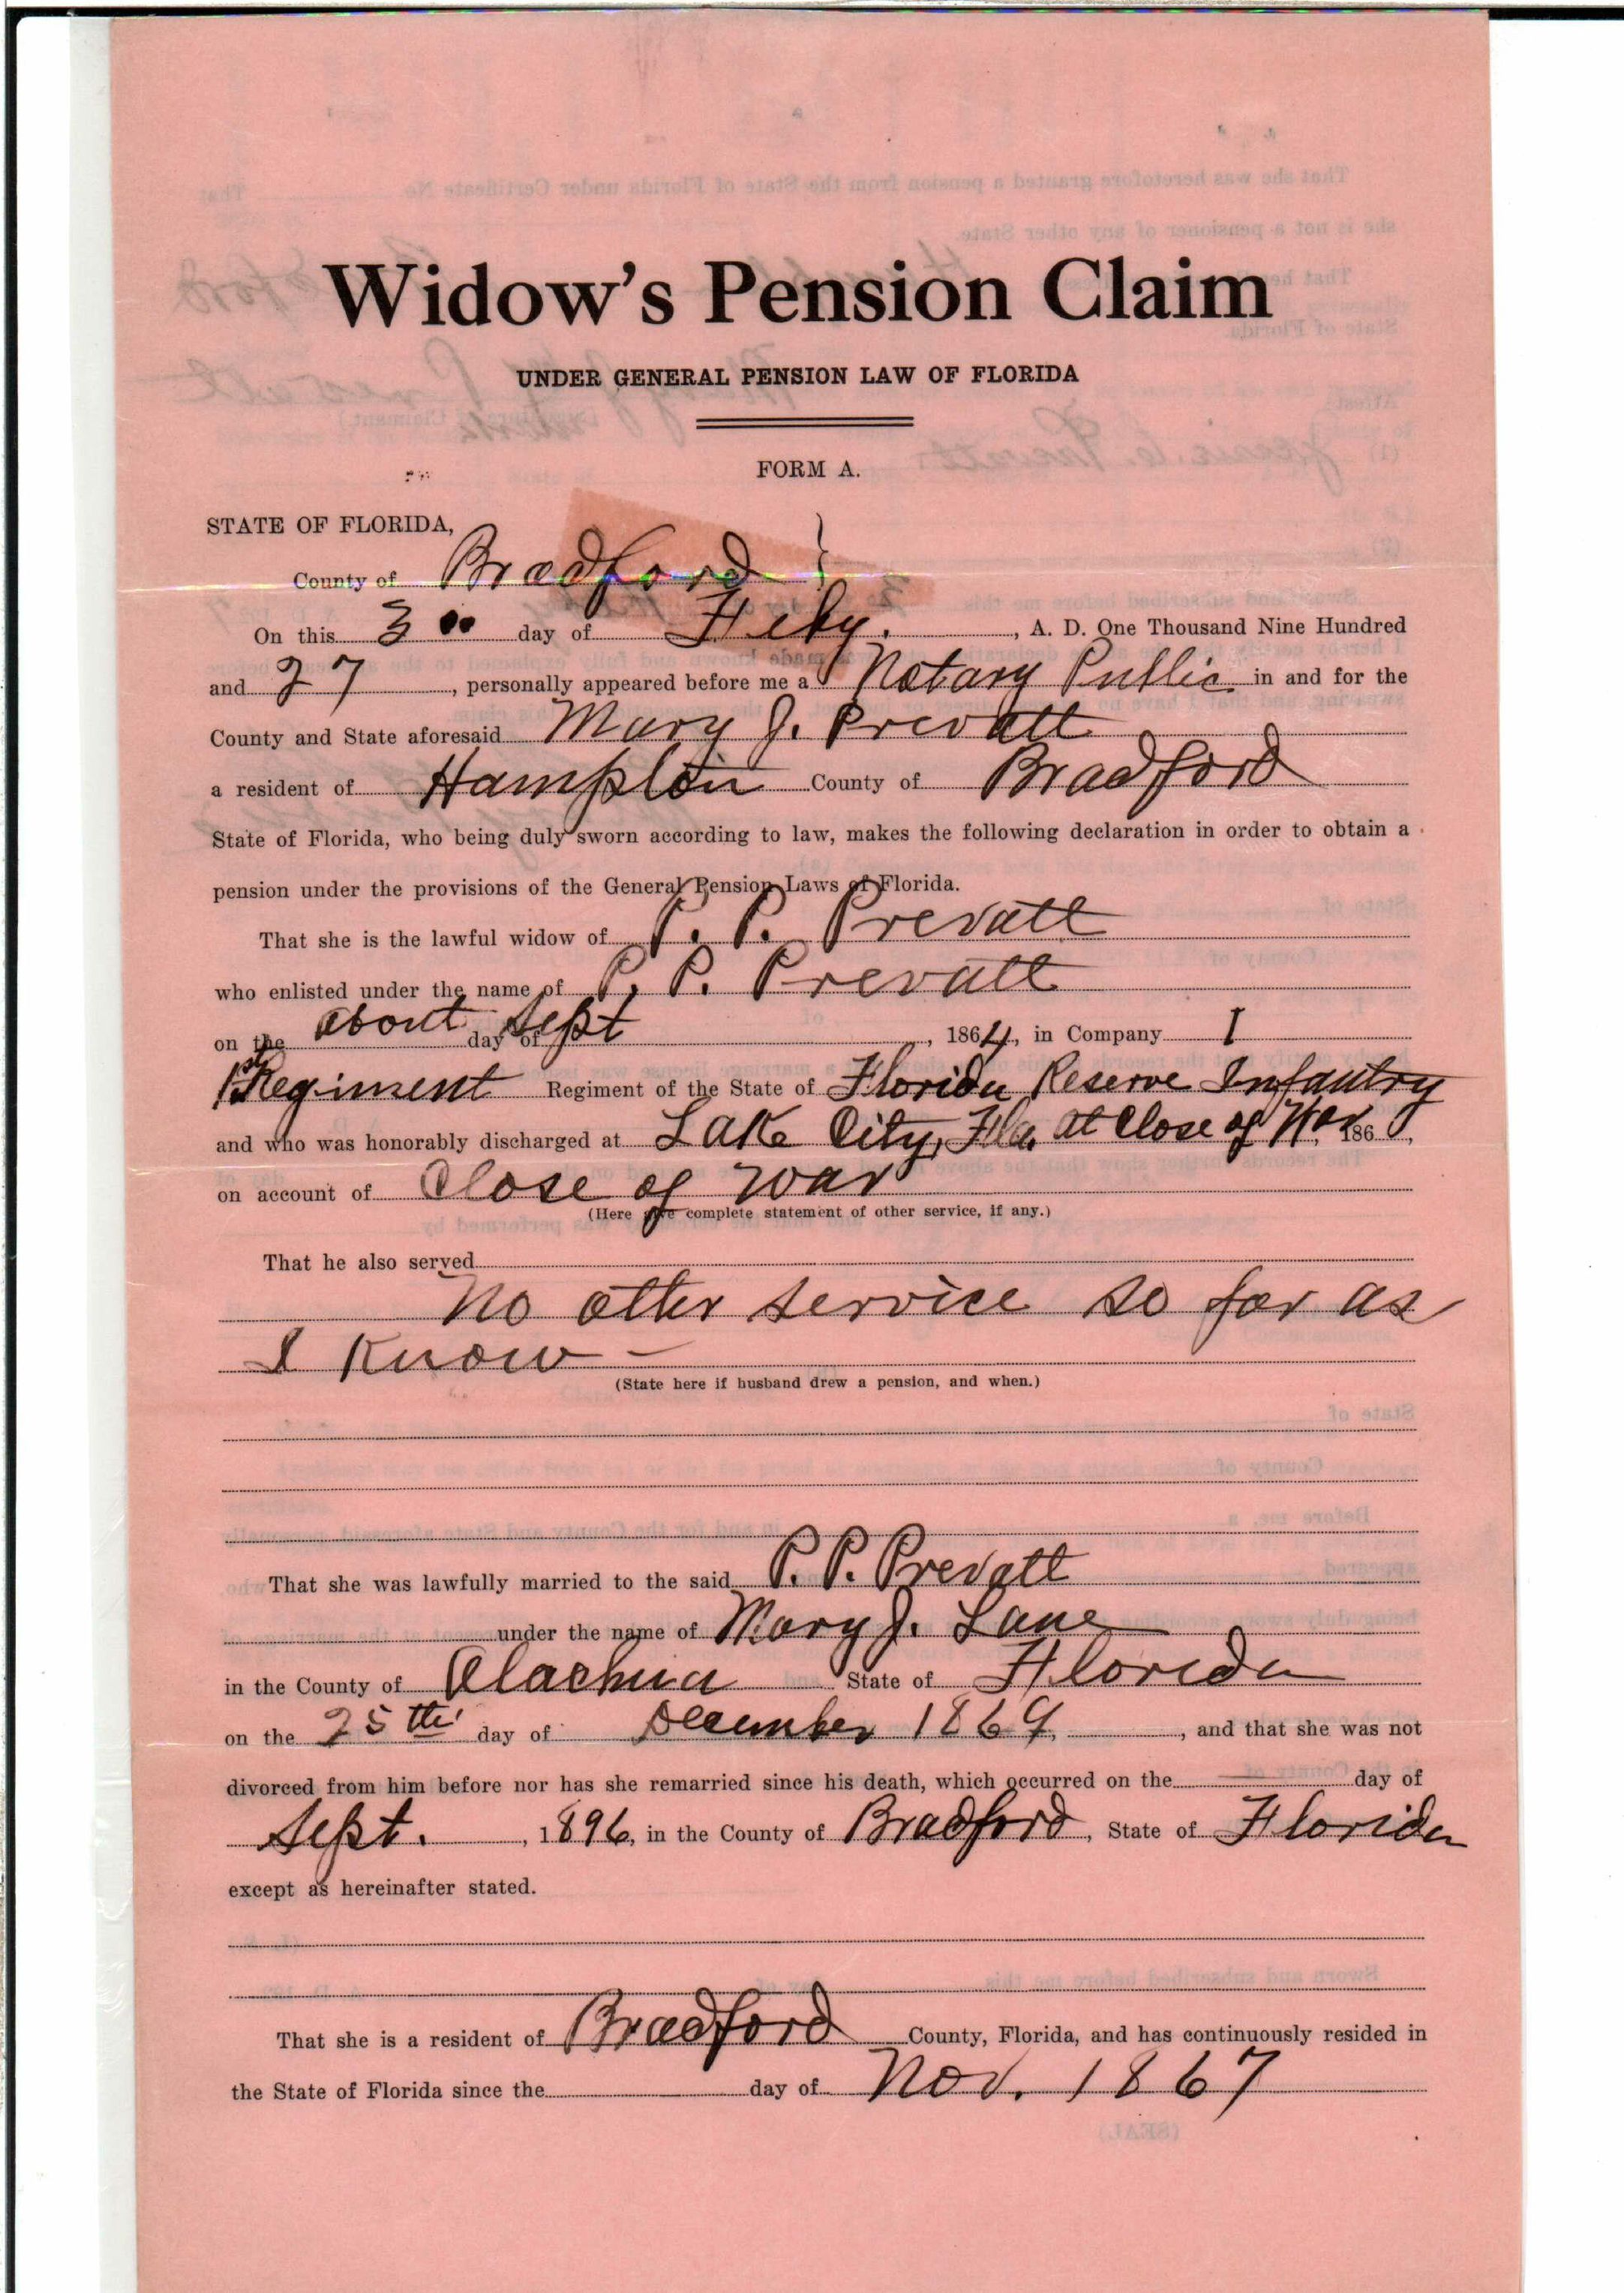 Widow's Pension Claim
UNDER GENERAL PENSION LAW OF FLORIDA
FORM A.
STATE OF FLORIDA,
County of Bradford }
On this 3 day of Feby. , A. D. One Thousand Nine Hundred
and 27 , personally appeared before me a Notary Public in and for the
County and State aforesaid Mary J. Prevatt
a resident of Hampton County of Bradford
State of Florida, who being duly sworn according to law, makes the following declaration in order to obtain a
pension under the provisions of the General Pension Laws of Florida.
That she is the lawful widow of P. P. Prevatt
who enlisted under the name of P. P. Prevatt
on the about day of Sept , 1864, in Company I
1st Regiment Regiment of the State of Florida Reserve Infantry
and who was honorably discharged at Lake City, Fla. at Close of War 186 ,
on account of Close of War
(Here give complete statement of other service, if any.)
That he also served
No other service so far as
I Know —
(State here if husband drew a pension, and when.)
That she was lawfully married to the said P. P. Prevatt
under the name of Mary J. Lane
in the County of Alachua State of Florida
on the 25th day of December 1869, , and that she was not
divorced from him before nor has she remarried since his death, which occurred on the — day of
Sept. , 1896, in the County of Bradford , State of Florida
except as hereinafter stated.
That she is a resident of Bradford County, Florida, and has continuously resided in
the State of Florida since the day of Nov. 1867